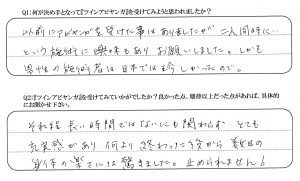 Q1:何が決め手となって『ツインアビヤンガ』を受けてみようと思われましたか？
以前にアビヤンガを受けた事はありましたが 二人同時に…
という施術に興味もあり お願いしました。しかも
男性の施術者は日本では珍しかったので。
Q2:『ツインアビヤンガ』を受けてみていかがでしたか？良かった点、期待以上だった点があれば、具体的
にお聞かせ下さい。
それ程 長い時間ではないにも関わらず とても
充実感があり 何より 終わった後から 翌日の
身体の楽さには驚きました。止められません！